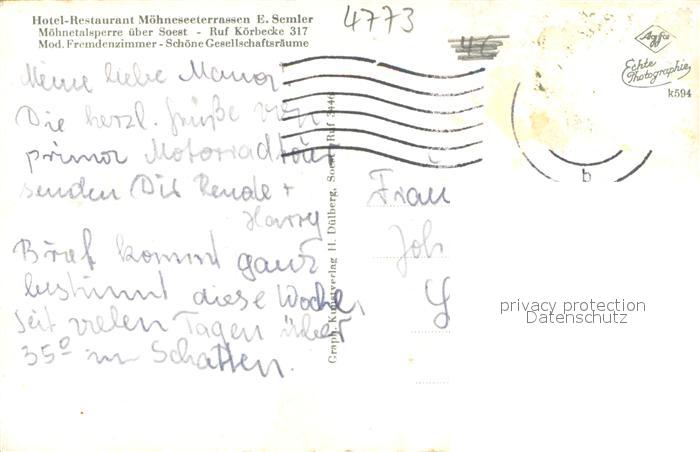 Hotel-Restaurant Möhneseeterrassen E. Semler
Möhnetalsperre über Soest - Ruf Körbecke 317
Mod. Fremdenzimmer - Schöne Gesellschaftsräume
4773
46
Agfa
Echte
Photographie
k594
Meine liebe
Die herzl. Grüße von
prima Motorradtour
senden Dir +
Harry
Brief kommt ganz
bestimmt diese Woche,
seit vielen Tagen über
35° im Schatten.
Graph. Kunstverlag H. Dülberg, Soest, Ruf 3446
b
Frau
Joh
privacy protection
Datenschutz